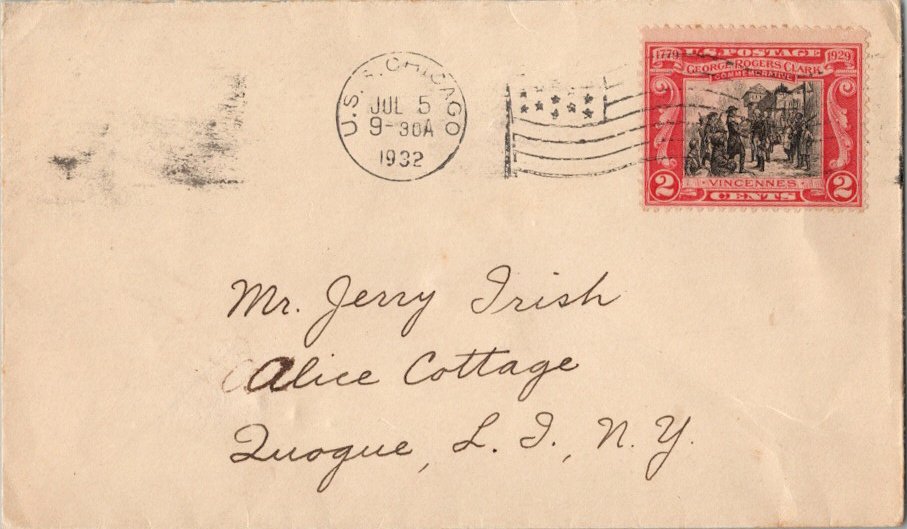 U.S.S. CHICAGO
JUL 5
9-30A
1932
1779 U.S. POSTAGE 1929
GEORGE ROGERS CLARK
COMMEMORATIVE
VINCENNES
2 CENTS 2
Mr. Jerry Irish
Alice Cottage
Quogue, L. I., N. Y.